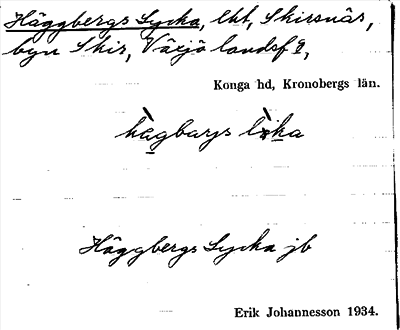 Häggbergs Lycka, lht, Skirsnäs,
byn Skir, Växjö landsf.
Konga hd, Kronobergs län.
Häggbergs Lycka jb
Erik Johannesson 1934.